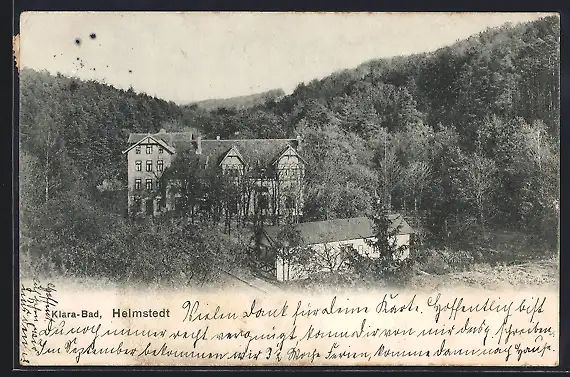 Klara-Bad, Helmstedt
Vielen Dank für Deine Karte. Hoffentlich bist
Du noch immer recht vergnügt kann dir von mir dasselbe schreiben
Im September bekommen wir 3½ Woche Ferien, komme dann nach Hause.